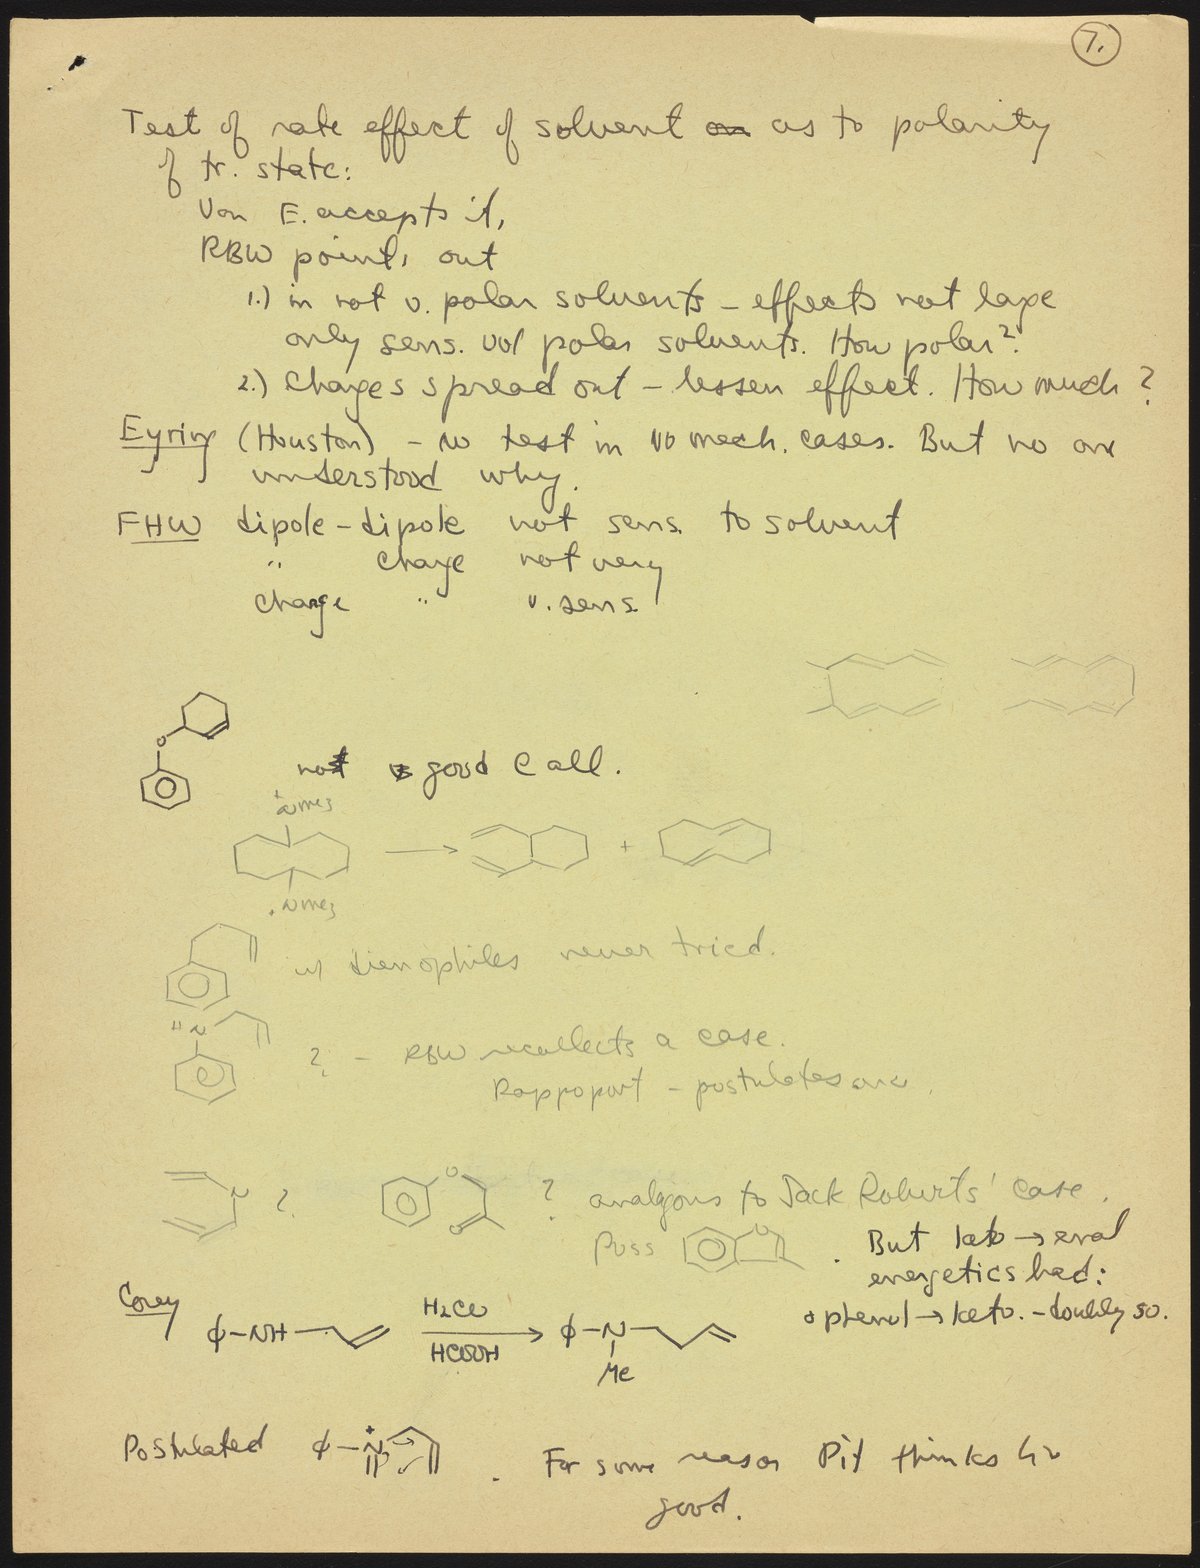 7.
Test of rate effect of solvent as to polarity
of tr. state:
Von E. accepts it,
RBW points out
1.) in not v. polar solvents – effects not large
only sens. polar solvents. How polar?
2.) Charges spread out – lessen effect. How much?
Eyring (Houston) – no test in no mech. cases. But no one
understood why.
FHW dipole-dipole not sens. to solvent
" charge not very
charge " v. sens.
O
not good call.
+NMe3
+
+NMe3
w/ dienophiles never tried.
HN
? – RBW recollects a case.
Rappoport – postulates one.
N ?
O O ? analogous to Jack Roberts' case.
Poss O . But keto → enol
energetics bad:
phenol → keto. – doubly so.
Corey ϕ–NH H2CO HCOOH ϕ–N
Me
Postulated ϕ–N+ . For some reason Pit thinks
good.